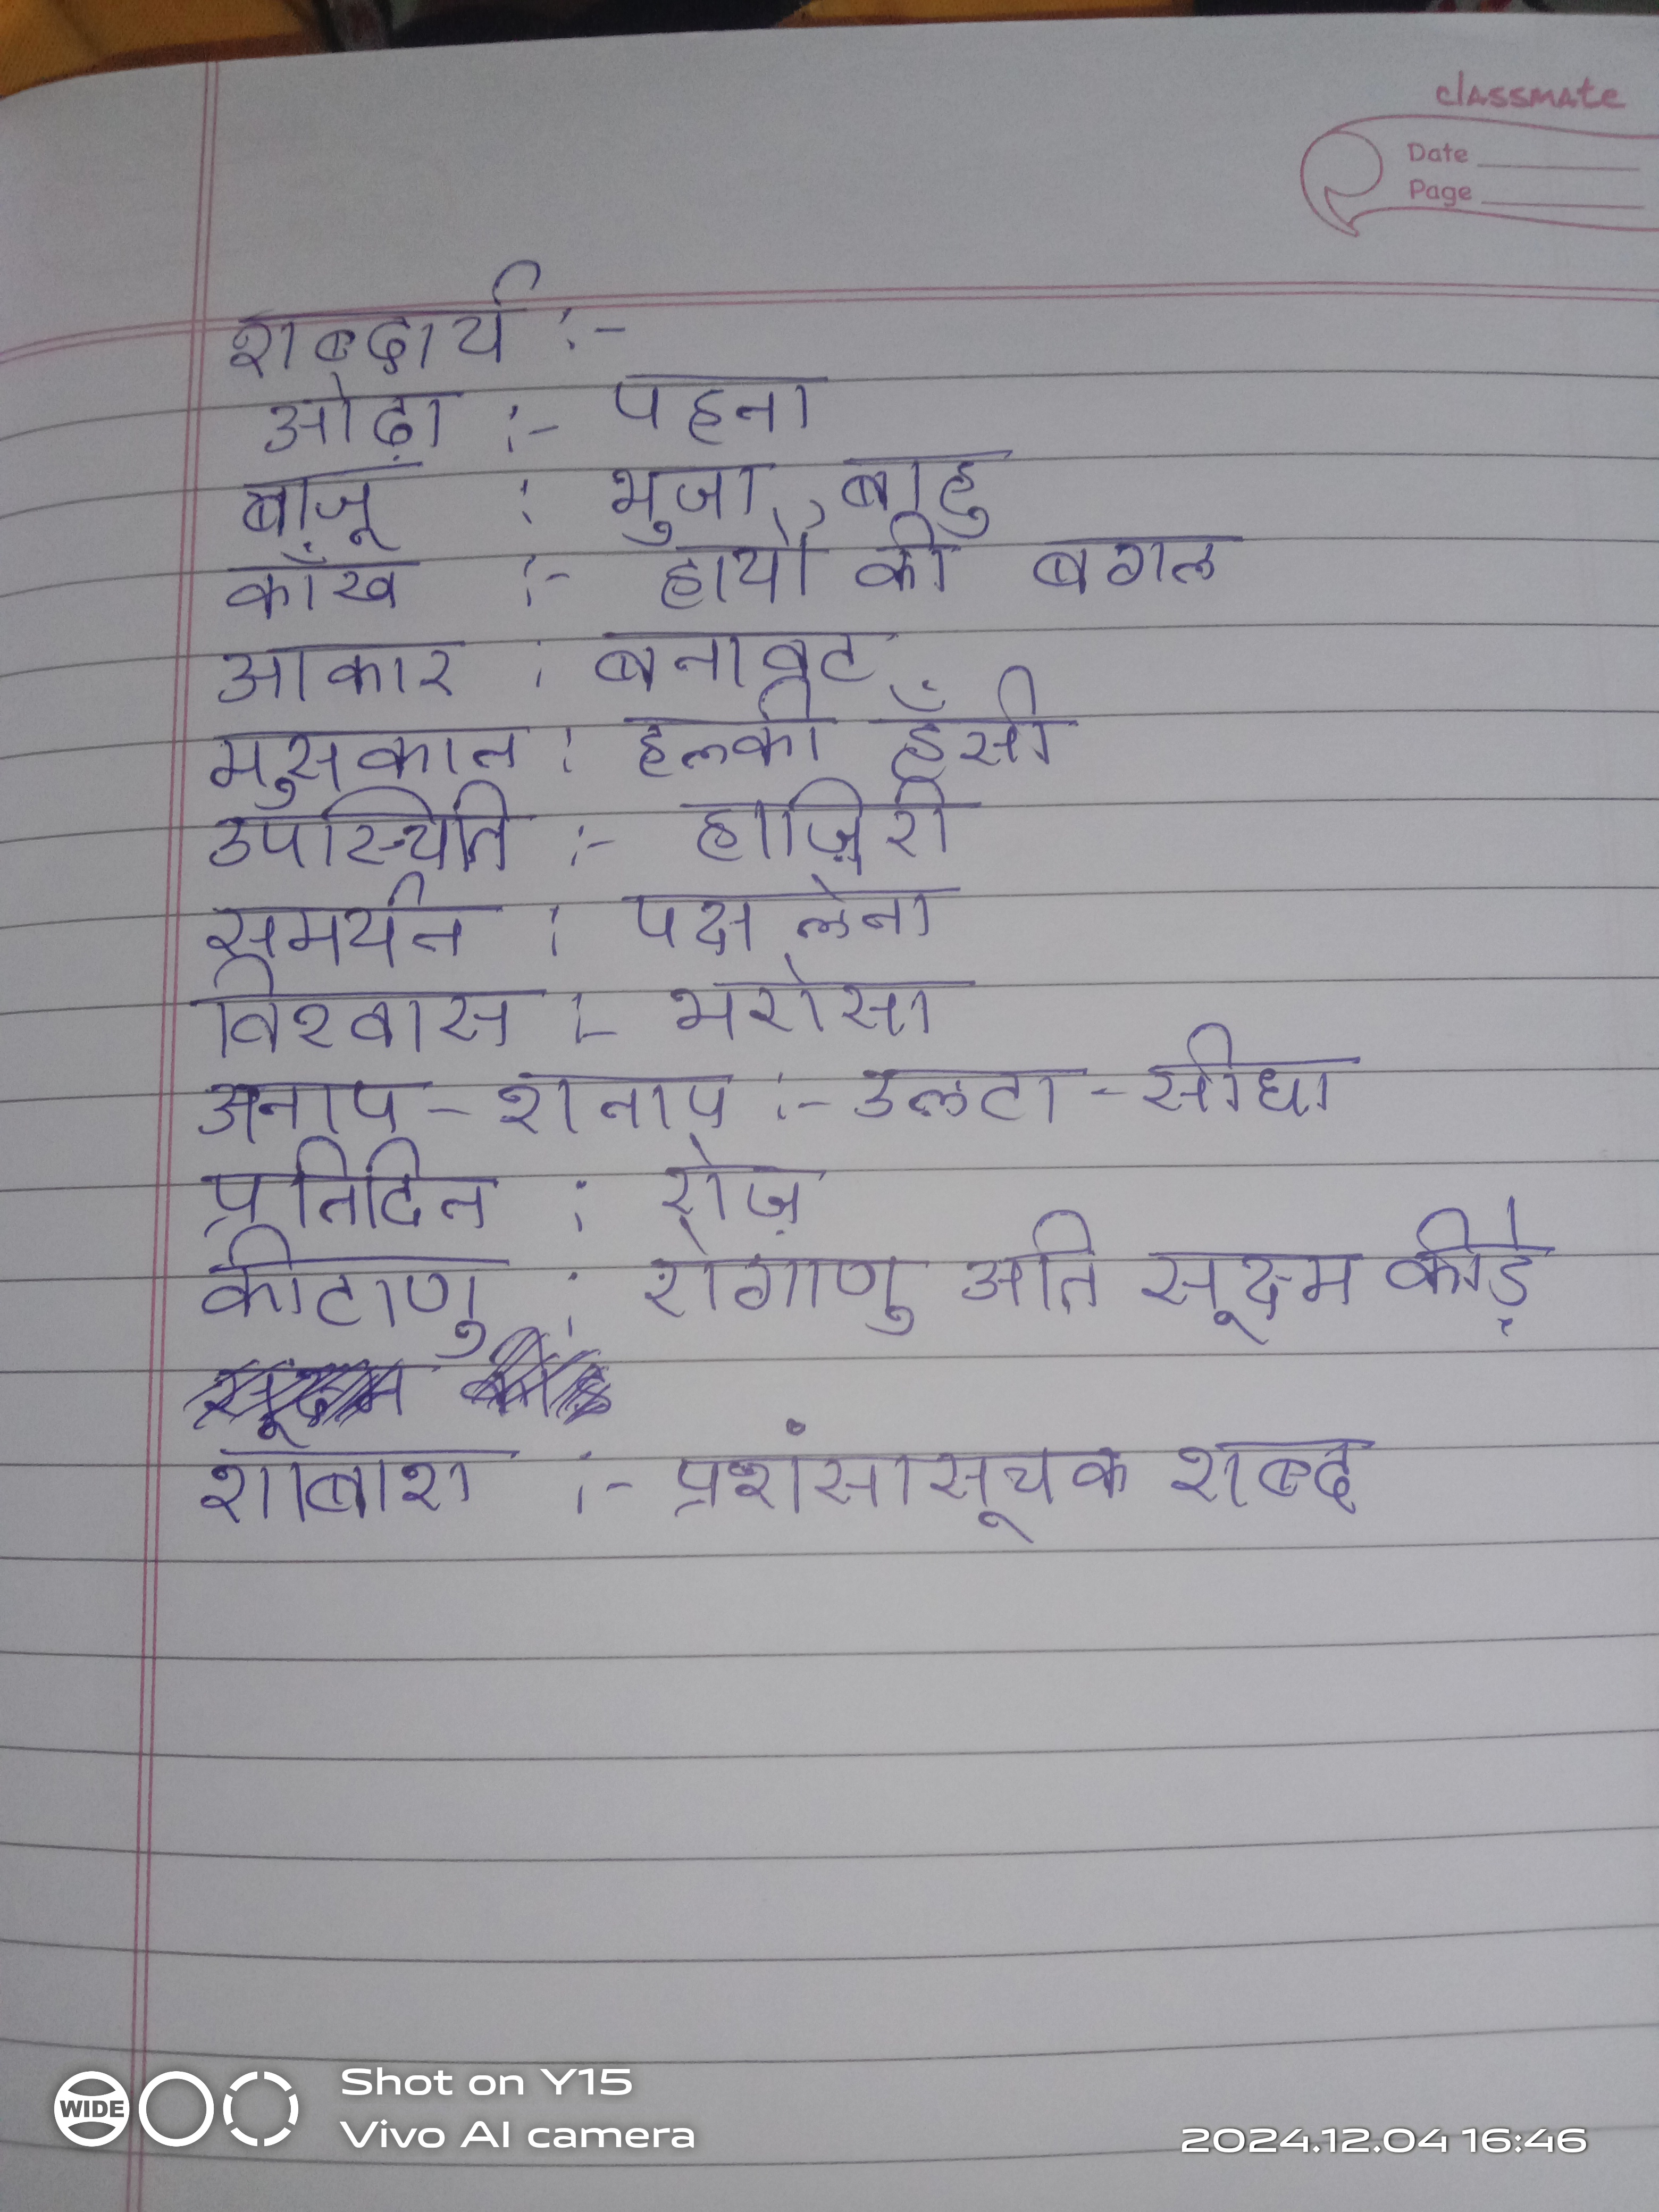 classmate
Date
Page
शब्दार्थ :-
ओढ़ा :- पहना
बाज़ू : भुजा, बाहु
काँख :- हाथों की बगल
आकार : बनावट
मुसकान : हलकी हँसी
उपस्थिति :- हाज़िरी
समर्थन : पक्ष लेना
विश्वास :- भरोसा
अनाप-शनाप :- उलटा-सीधा
प्रतिदिन : रोज़
कीटाणु : रोगाणु अति सूक्ष्म कीड़े
शाबाश :- प्रशंसासूचक शब्द
WIDE
Shot on Y15
Vivo AI camera
2024.12.04 16:46